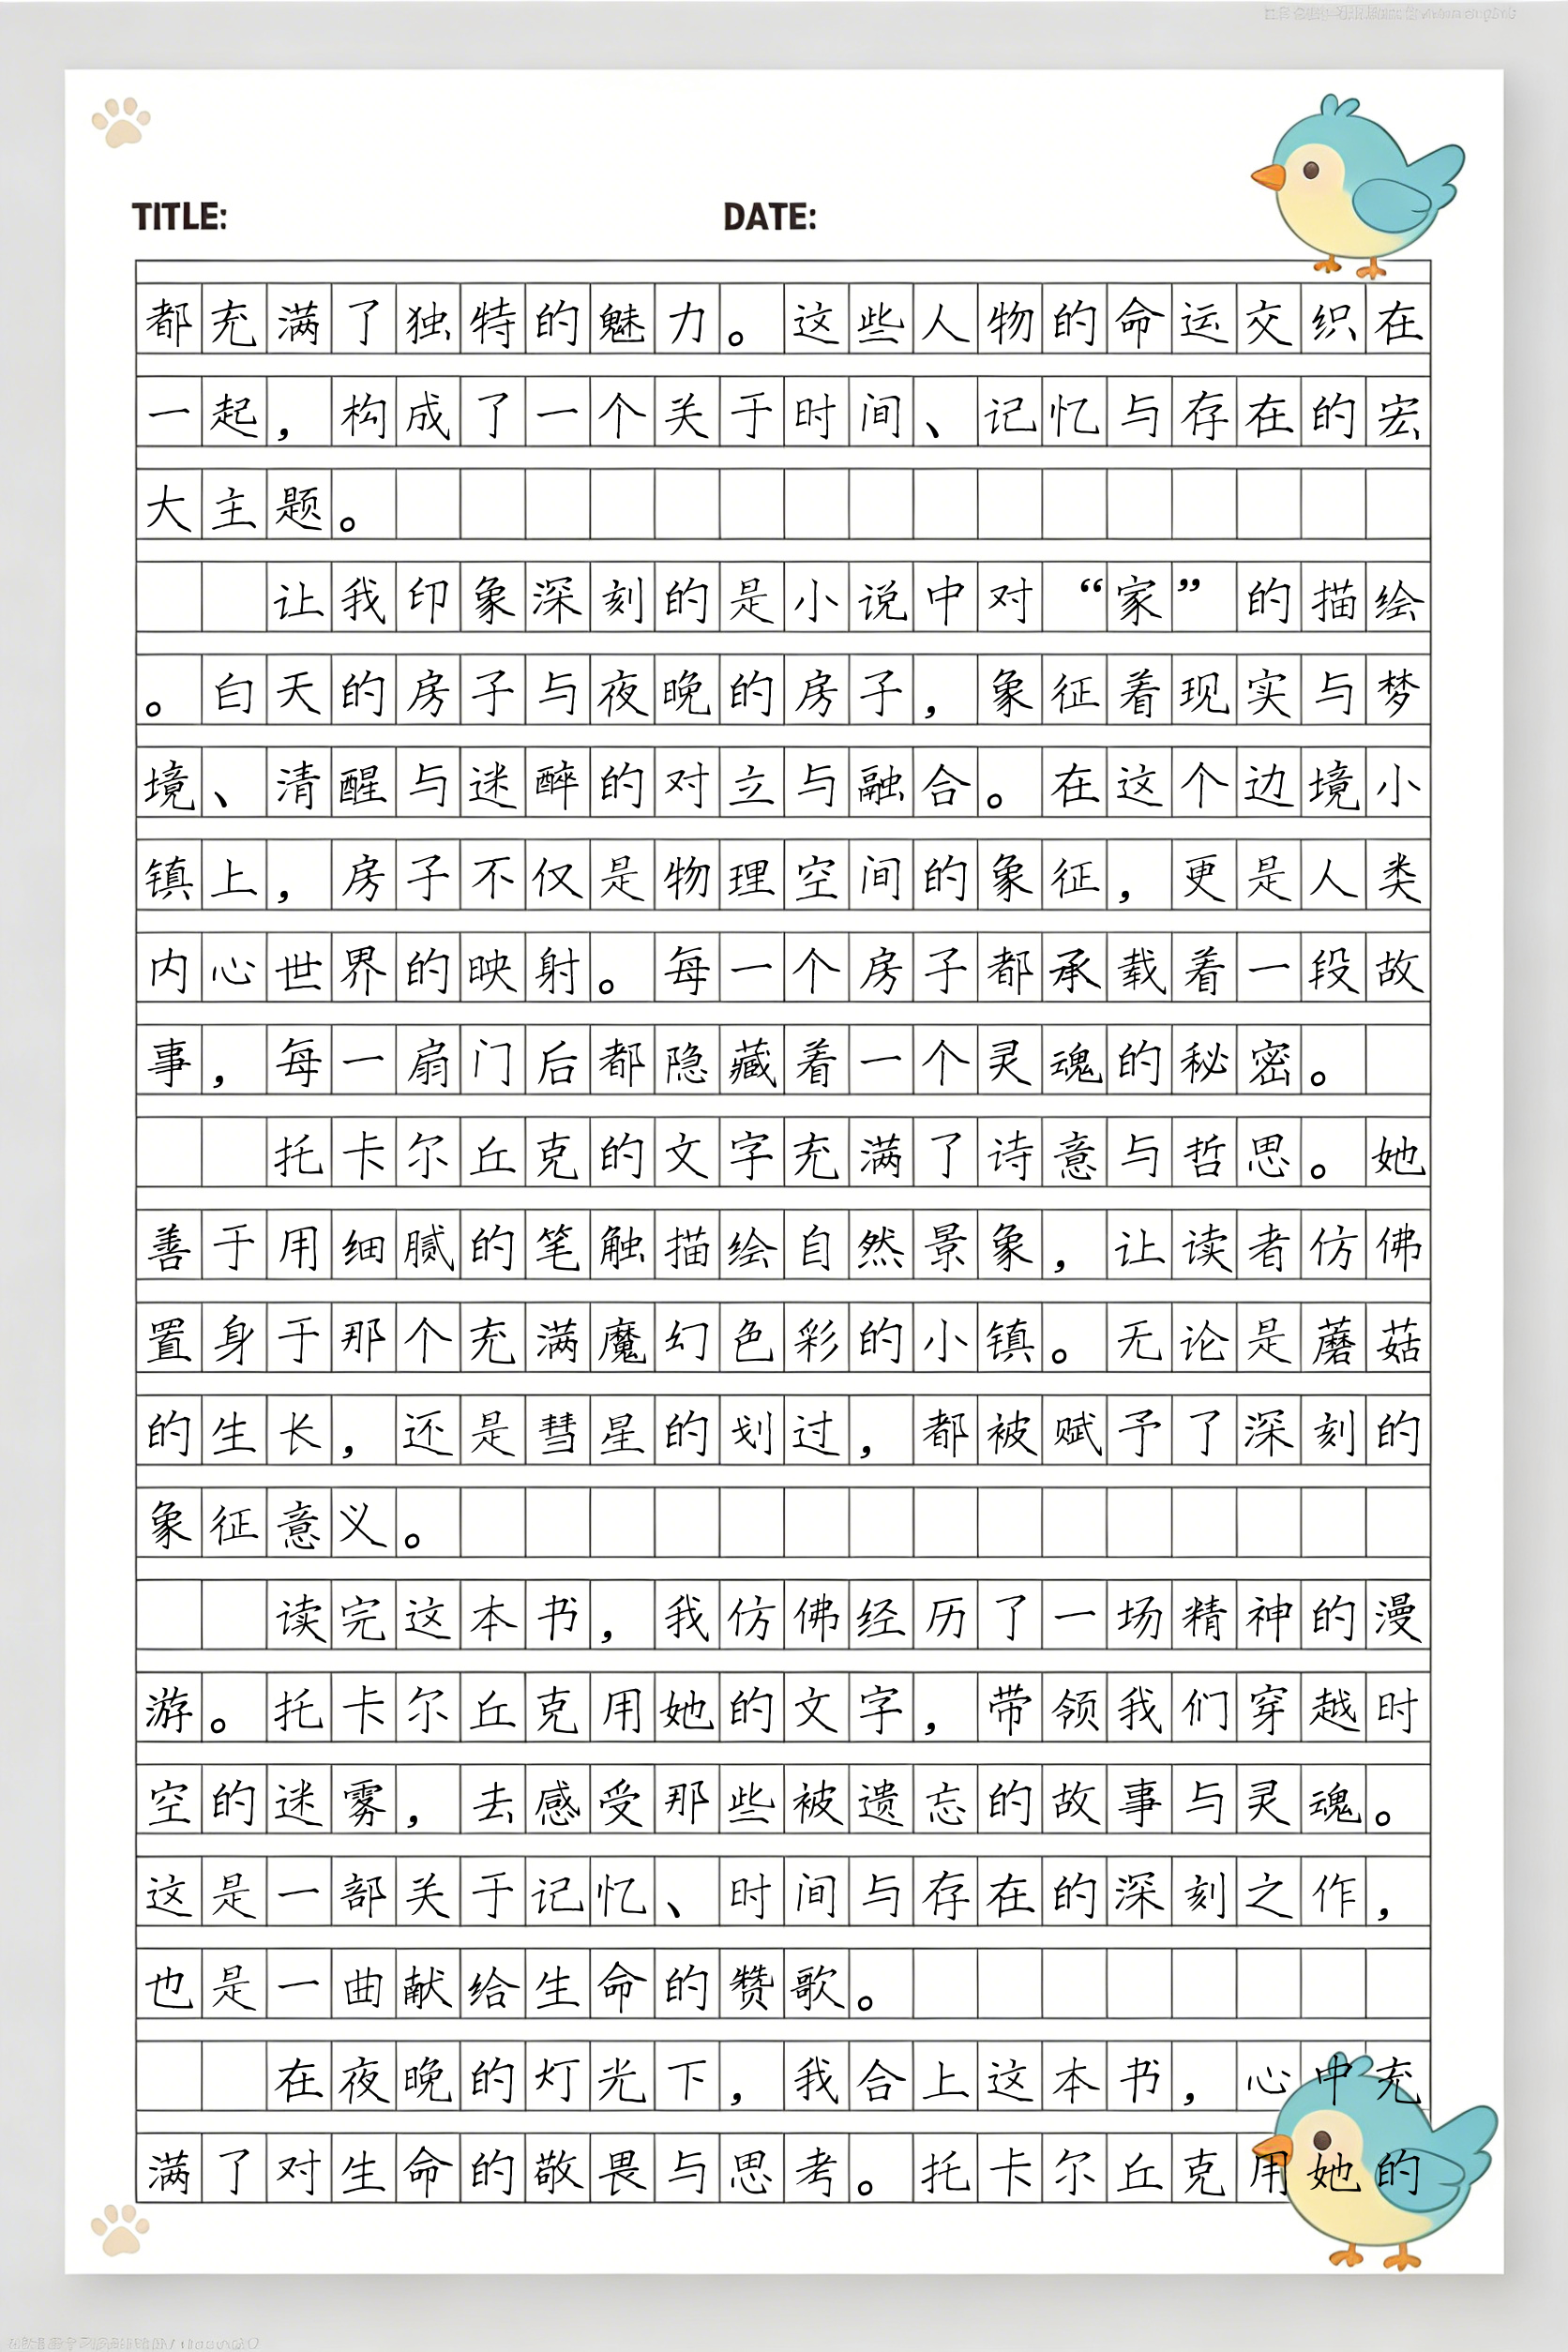 TITLE: DATE:
都充满了独特的魅力。这些人物的命运交织在
一起，构成了一个关于时间、记忆与存在的宏
大主题。
让我印象深刻的是小说中对“家”的描绘
。白天的房子与夜晚的房子，象征着现实与梦
境、清醒与迷醉的对立与融合。在这个边境小
镇上，房子不仅是物理空间的象征，更是人类
内心世界的映射。每一个房子都承载着一段故
事，每一扇门后都隐藏着一个灵魂的秘密。
托卡尔丘克的文字充满了诗意与哲思。她
善于用细腻的笔触描绘自然景象，让读者仿佛
置身于那个充满魔幻色彩的小镇。无论是蘑菇
的生长，还是彗星的划过，都被赋予了深刻的
象征意义。
读完这本书，我仿佛经历了一场精神的漫
游。托卡尔丘克用她的文字，带领我们穿越时
空的迷雾，去感受那些被遗忘的故事与灵魂。
这是一部关于记忆、时间与存在的深刻之作，
也是一曲献给生命的赞歌。
在夜晚的灯光下，我合上这本书，心中充
满了对生命的敬畏与思考。托卡尔丘克用她的